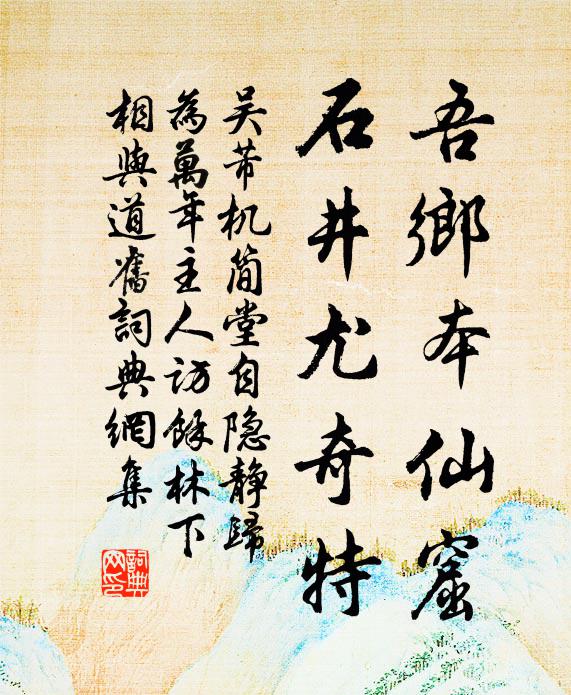 吾鄉本仙窟
石井尤奇特
吴芾机简堂自隐静歸
為萬年主人访餘林下
相與道舊詞典網集
詞典網印